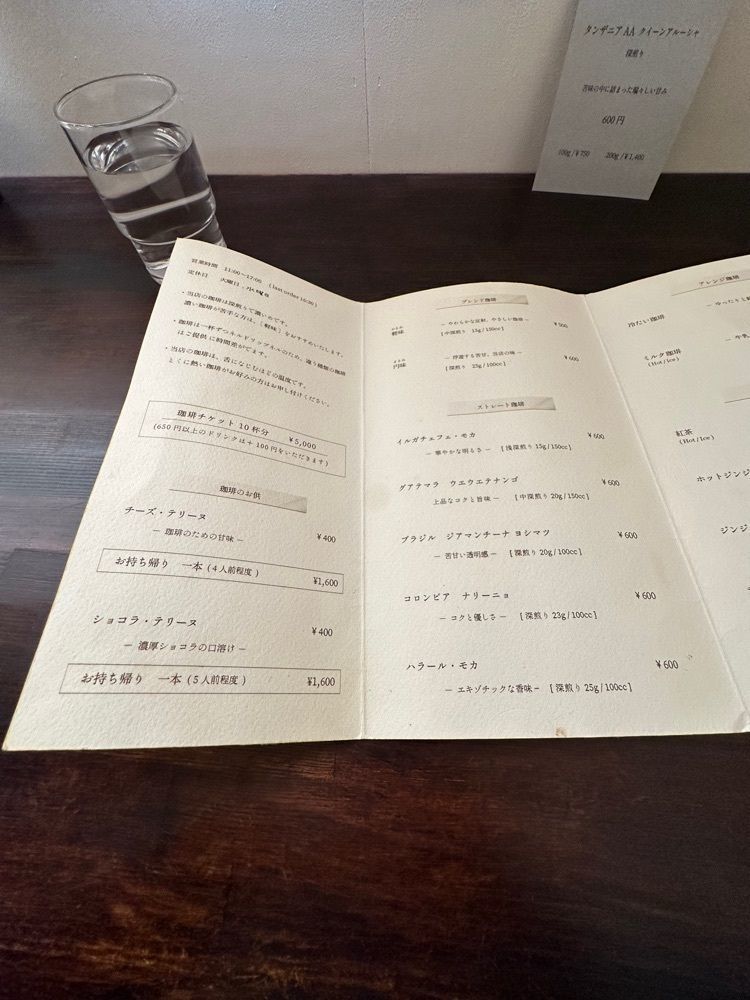 タンザニア AA クイーンアルーシャ
深煎り
苦味の中に詰まった瑞々しい甘み
600円
100g/¥750 200g/¥1,400
営業時間 11:00〜17:00 (last order 16:30)
定休日 火曜日・水曜日
・当店の珈琲は深煎りで濃いめです。
濃い珈琲が苦手な方は、[軽味]をおすすめいたします。
・珈琲は一杯ずつネルドリップスるのため、違う種類の珈琲
はご提供に時間差がでます。
・当店の珈琲は、舌になじむほどの温度です。
とくに熱い珈琲がお好みの方はお申し付けください。
珈琲チケット10杯分 ¥5,000
(650円以上のドリンクは+100円をいただきます)
珈琲のお供
チーズ・テリーヌ
― 珈琲のための甘味 ― ¥400
お持ち帰り 一本(4人前程度) ¥1,600
ショコラ・テリーヌ ¥400
― 濃厚ショコラの口溶け ―
お持ち帰り 一本(5人前程度) ¥1,600
ブレンド珈琲
軽味 ― やわらかな反射、やさしい珈琲 ― ¥500
[中深煎り 15g/150cc]
円味 ― 浮遊する苦甘、当店の味 ― ¥600
[深煎り 25g/100cc]
ストレート珈琲
イルガチェフェ・モカ ¥600
― 華やかな明るさ ― [浅深煎り 15g/150cc]
グアテマラ ウエウエテナンゴ ¥600
上品なコクと旨味 ― [中深煎り 20g/150cc]
ブラジル ジアマンチーナ ヨシマツ ¥600
― 苦甘い透明感 ― [深煎り 20g/100cc]
コロンビア ナリーニョ ¥600
― コクと優しさ ― [深煎り 23g/100cc]
ハラール・モカ ¥600
― エキゾチックな香味 ― [深煎り 25g/100cc]
アレンジ珈琲
冷たい珈琲
― ゆったりと
ミルク珈琲
(Hot/Ice) ― 牛乳
紅茶
(Hot/Ice)
ホットジンジ
ジンジ